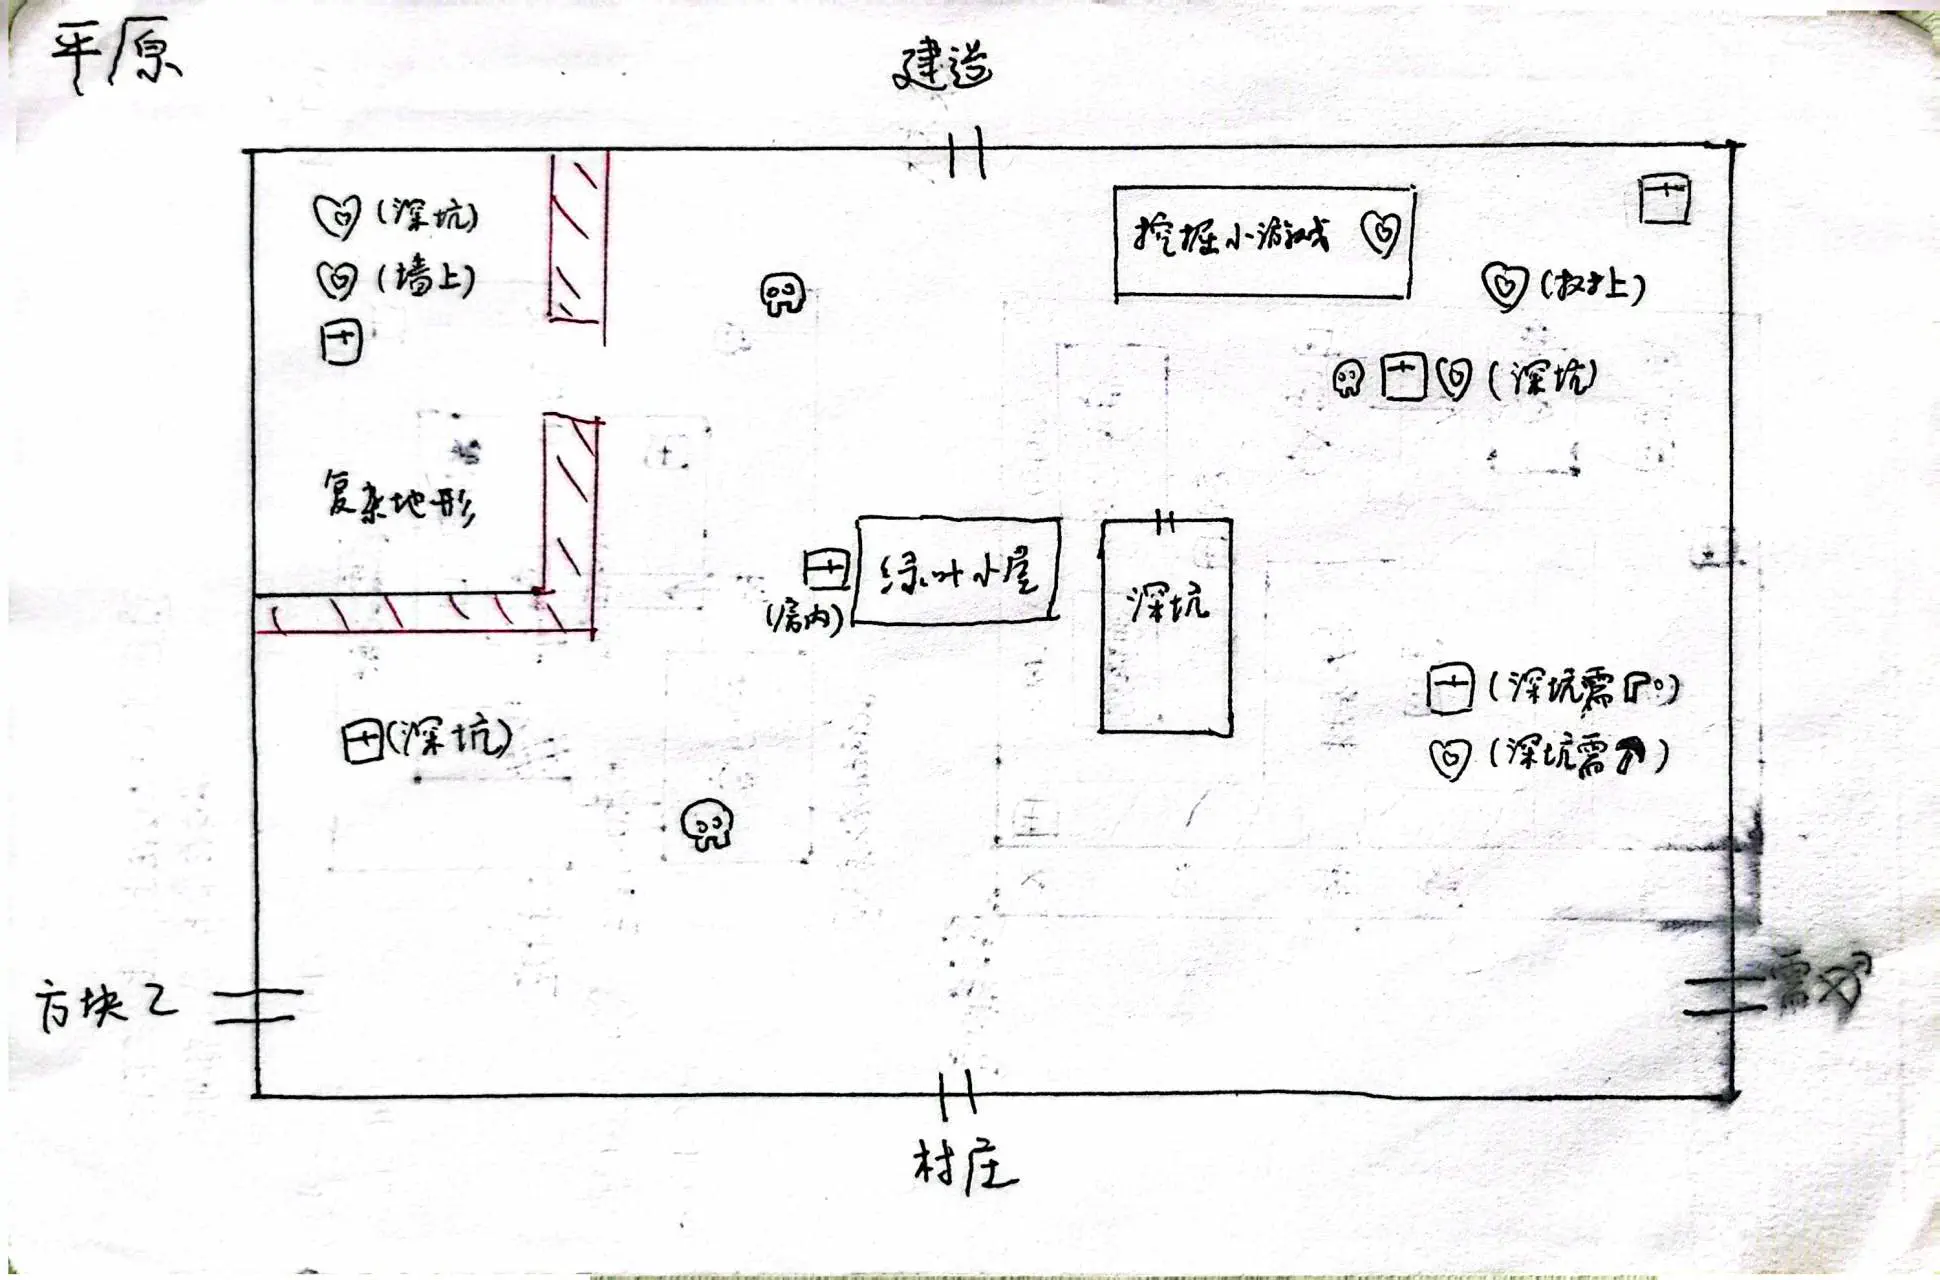 平原
建造
(深坑)
(墙上)
挖掘小游戏
(树上)
(深坑)
复杂地形
绿叶小屋
(房内)
深坑
(深坑需
(深坑)
(深坑需
方块乙
需
村庄